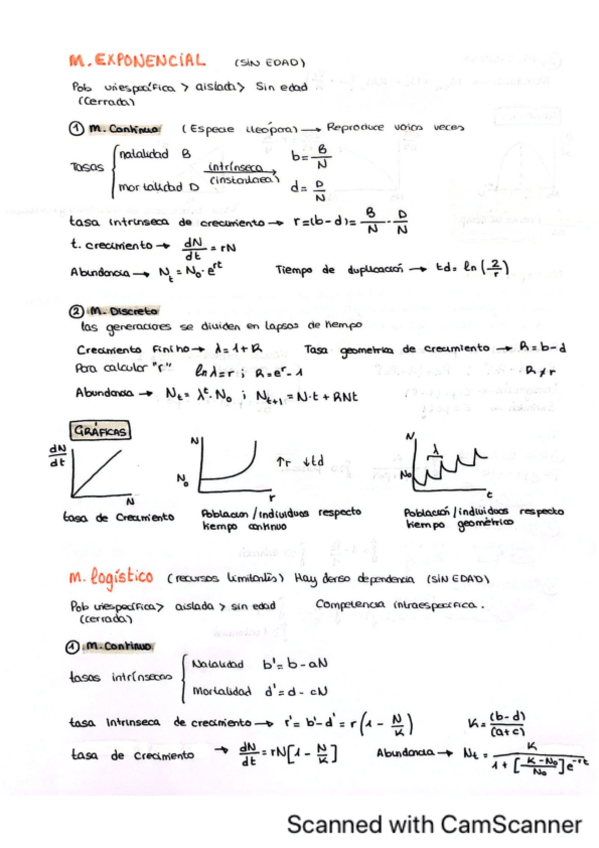 M. EXPONENCIAL (SIN EDAD)
Pob uniespecífica > aislada > Sin edad
(cerrada)
① M. Continuo (Especie iteópara) → Reproduce varias veces
Tasas { natalidad B intrínseca (instantanea) → b = B/N
mortalidad D d = D/N
tasa intrinseca de crecimiento → r = (b-d) = B/N - D/N
t. crecimiento → dN/dt = rN
Abundancia → Nt = N₀·e^rt Tiempo de duplicación → td = ln (2/r)
② M. Discreto
las generaciones se dividen en lapsos de tiempo
Crecimiento Finito → λ = 1+R Tasa geometrica de crecimiento → R = b-d
Para calcular "r" ln λ = r ; R = e^r - 1 · R ≠ r
Abundancia → Nt = λ^t · N₀ ; Nt+1 = N·t + RNt
GRÁFICAS
dN/dt N
N N₀ r
↑r ↓td
N N₀ λ t
tasa de Crecimiento
Poblacion / individuos respecto tiempo continuo
Población / individuos respecto tiempo geométrico
M. logístico (recursos limitantes) Hay denso dependencia (SIN EDAD)
Pob uniespecífica > aislada > sin edad Competencia intraespecífica.
(cerrada)
① M. Continuo
tasas intrínsecas { Natalidad b' = b - aN
Mortalidad d' = d - cN
tasa Intrinseca de crecimiento → r' = b'-d' = r (1 - N/K) K = (b-d)/(a+c)
tasa de Crecimiento → dN/dt = rN [1 - N/K] Abundancia → Nt = K / 1 + [K-N₀/N₀] e^-rt
Scanned with CamScanner